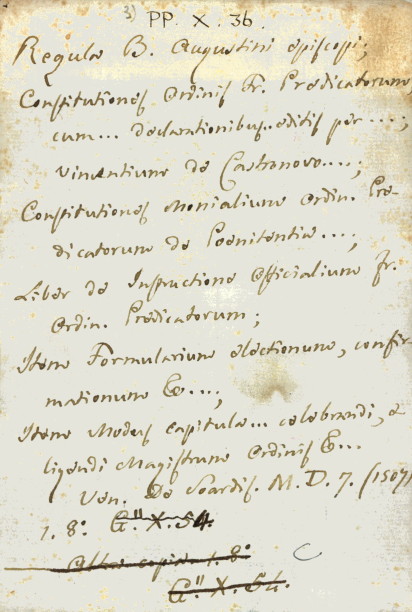 3) PP. X. 36.
Regula B. Augustini episcopi;
Constitutiones Ordinis Fr. Prædicatorum,
cum... declarationibus editis per ....;
Vincentium de Castronovo....;
Constitutiones Monialium Ordin. Præ-
dicatorum de Pœnitentia....;
Liber de Instructione Officialium Fr.
Ordin. Prædicatorum;
Item Formularium electionum, confir-
mationum &c...;
Item Modus capitula... celebrandi, e-
ligendi Magistrum Ordinis &...
Ven. De Soardis. M. D. 7. (1507)
1. 8º. G." X. 54.
Altra copia 1. 8º
G." X. 54.